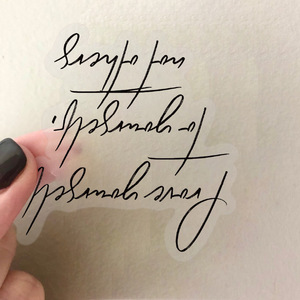 Prove yourself
to yourself,
not others